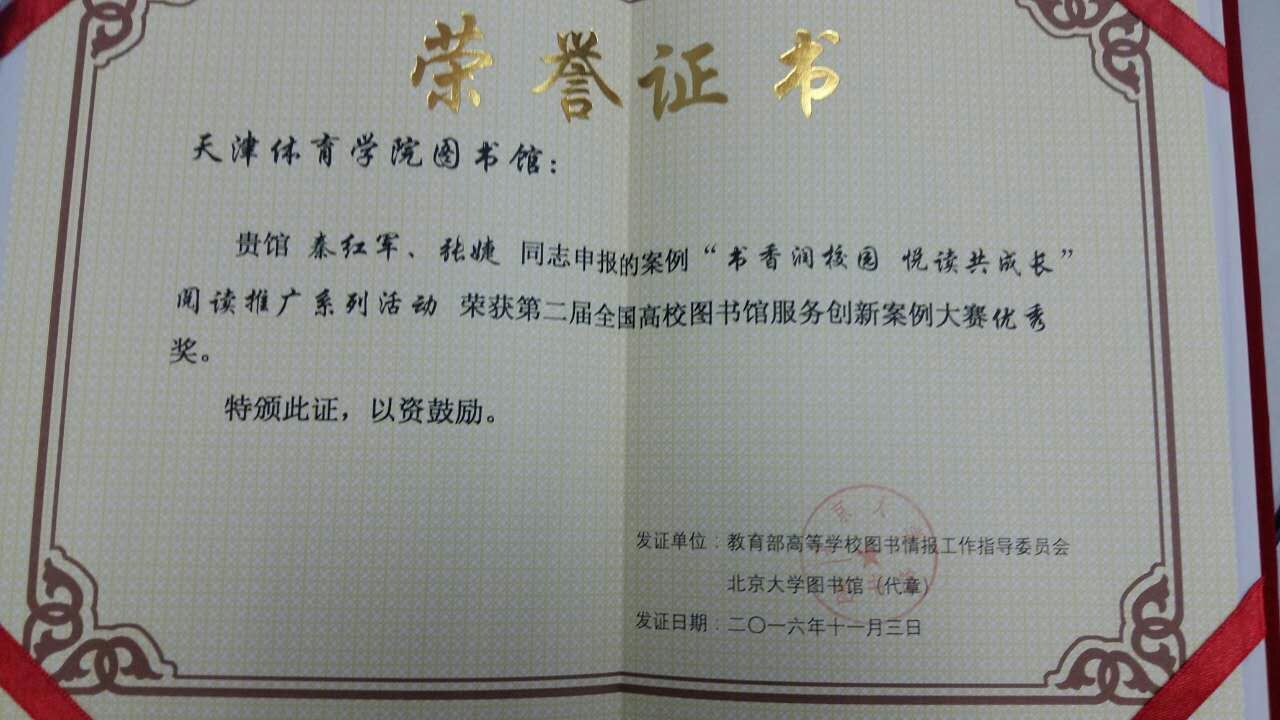 荣誉证书
天津体育学院图书馆：
贵馆 秦红军、张婕 同志申报的案例“书香润校园 悦读共成长”
阅读推广系列活动 荣获第二届全国高校图书馆服务创新案例大赛优秀
奖。
特颁此证，以资鼓励。
发证单位：教育部高等学校图书情报工作指导委员会
北京大学图书馆（代章）
发证日期：二〇一六年十一月三日